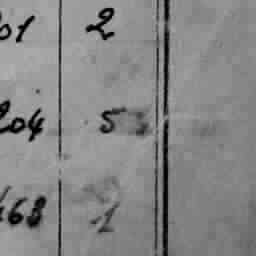 01 2
204 5
168 1